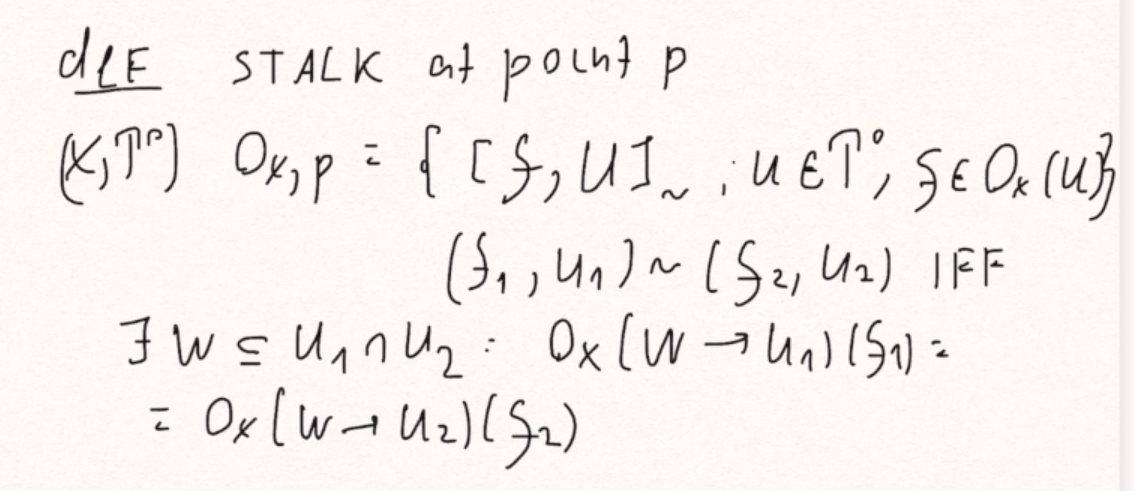 def STALK at point p
(X,T^o) O_{X,p} = { [f, U]_~ ; U ∈ T^o, f ∈ O_X(U)}
(f_1, U_1) ~ (f_2, U_2) IFF
∃ W ⊆ U_1 ∩ U_2 : O_X(W → U_1)(f_1) =
= O_X(W → U_2)(f_2)